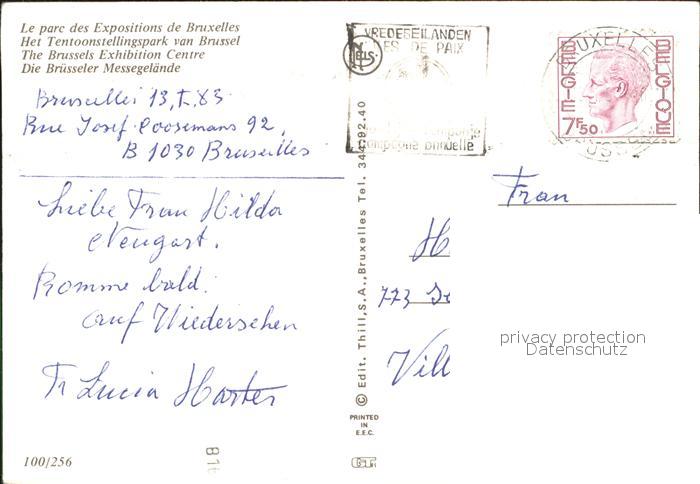 Le parc des Expositions de Bruxelles
Het Tentoonstellingspark van Brussel
The Brussels Exhibition Centre
Die Brüsseler Messegelände
Rue Josef Coosemans 92,
B 1030 Bruxelles
Liebe Frau Hilda
Neugart.
Komme bald.
auf Wiedersehen
Fr Lucia Harter
100/256
VREDESEILANDEN
ILES DE PAIX
NELS
annuelle
© Edit. Thill, S.A., Bruxelles Tel. 344.92.40
PRINTED
IN
E.E.C.
BELGIE
BELGIQUE
7F50
Frau
H
773
Vill
privacy protection
Datenschutz